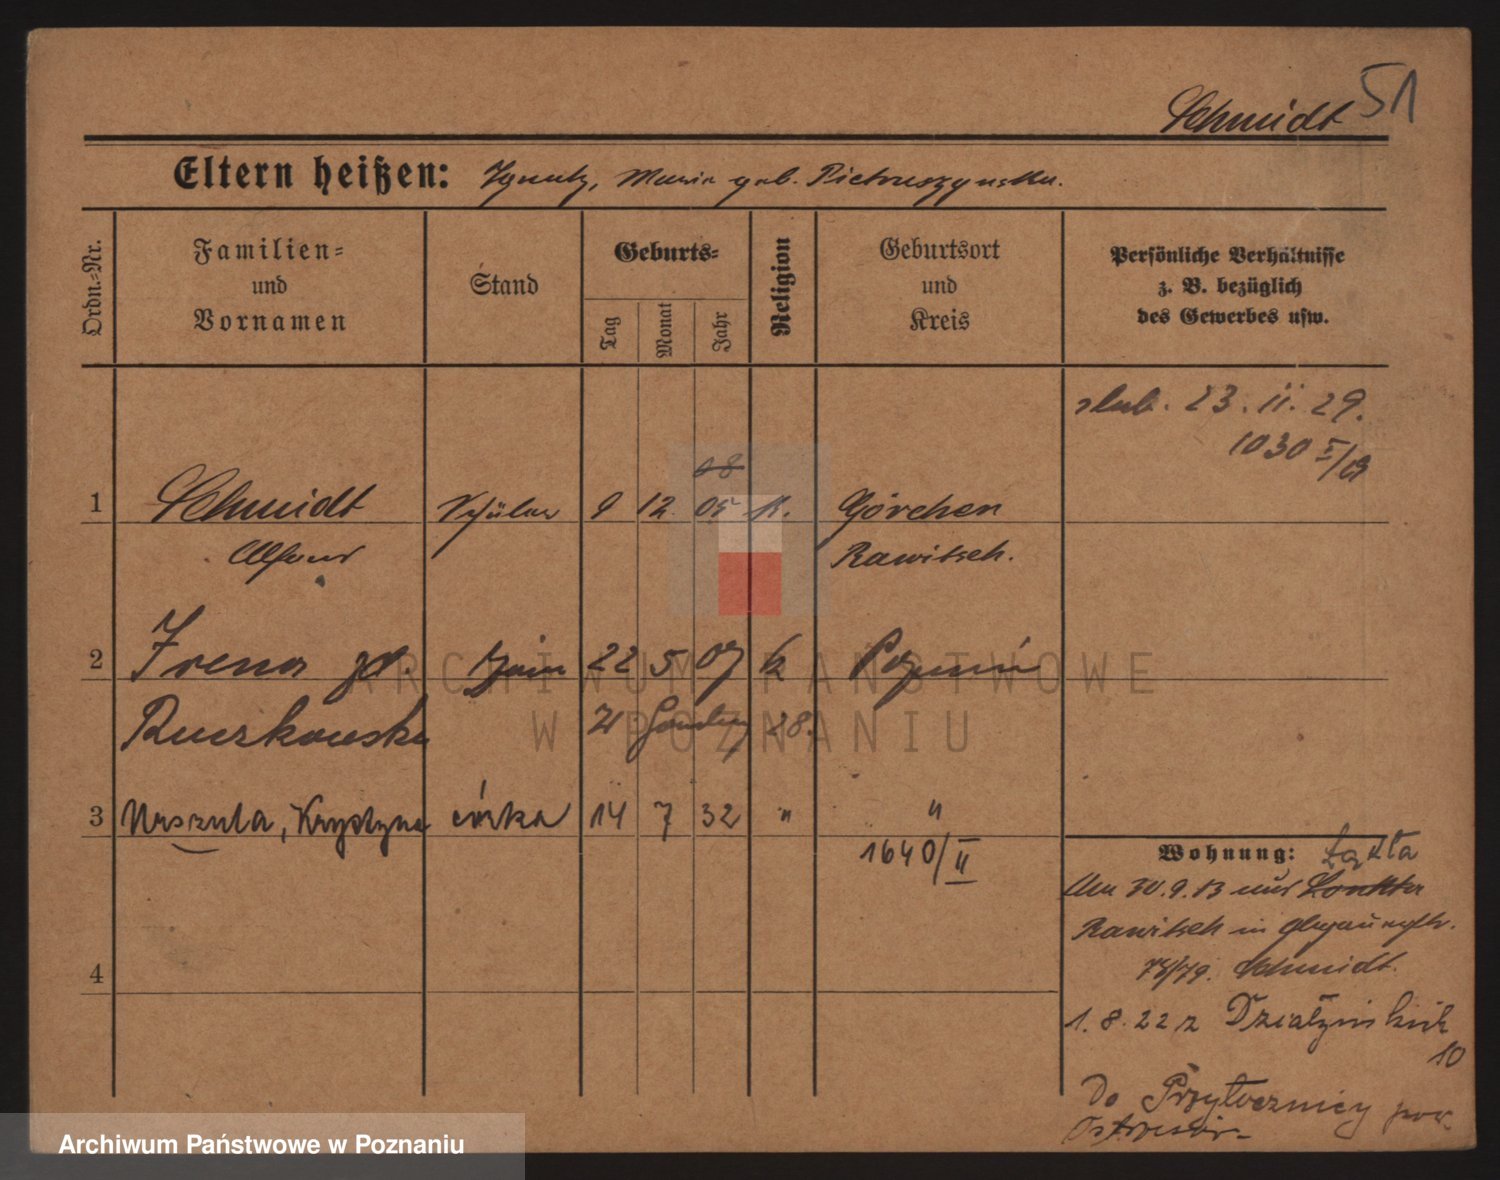 51
Schmidt
Eltern heißen: Ignatz, Maria geb. Pietruszynska.
Ordn.-Nr.
Familien- und Vornamen
Stand
Geburts-
Tag
Monat
Jahr
Religion
Geburtsort und Kreis
Persönliche Verhältnisse z. B. bezüglich des Gewerbes usw.
ślub. 23. II. 29.
1030
1 Schmidt Schüler 9 12. 08 05 k. Görchen
Alfons Rawitsch.
2 Irena 22 5 07 k Poznań
Ruczkowska 28.
3 Urszula, Krystyna córka 14 7 32 " "
1640/II
4
Wohnung: Łąkta
Am 30.9.13 aus
Rawitsch in
78/79. Schmidt.
1.8.22 z Działyńskich
10
Do Przytocznicy pow.
Ostrzeszów
ARCHIWUM PAŃSTWOWE
W POZNANIU
Archiwum Państwowe w Poznaniu